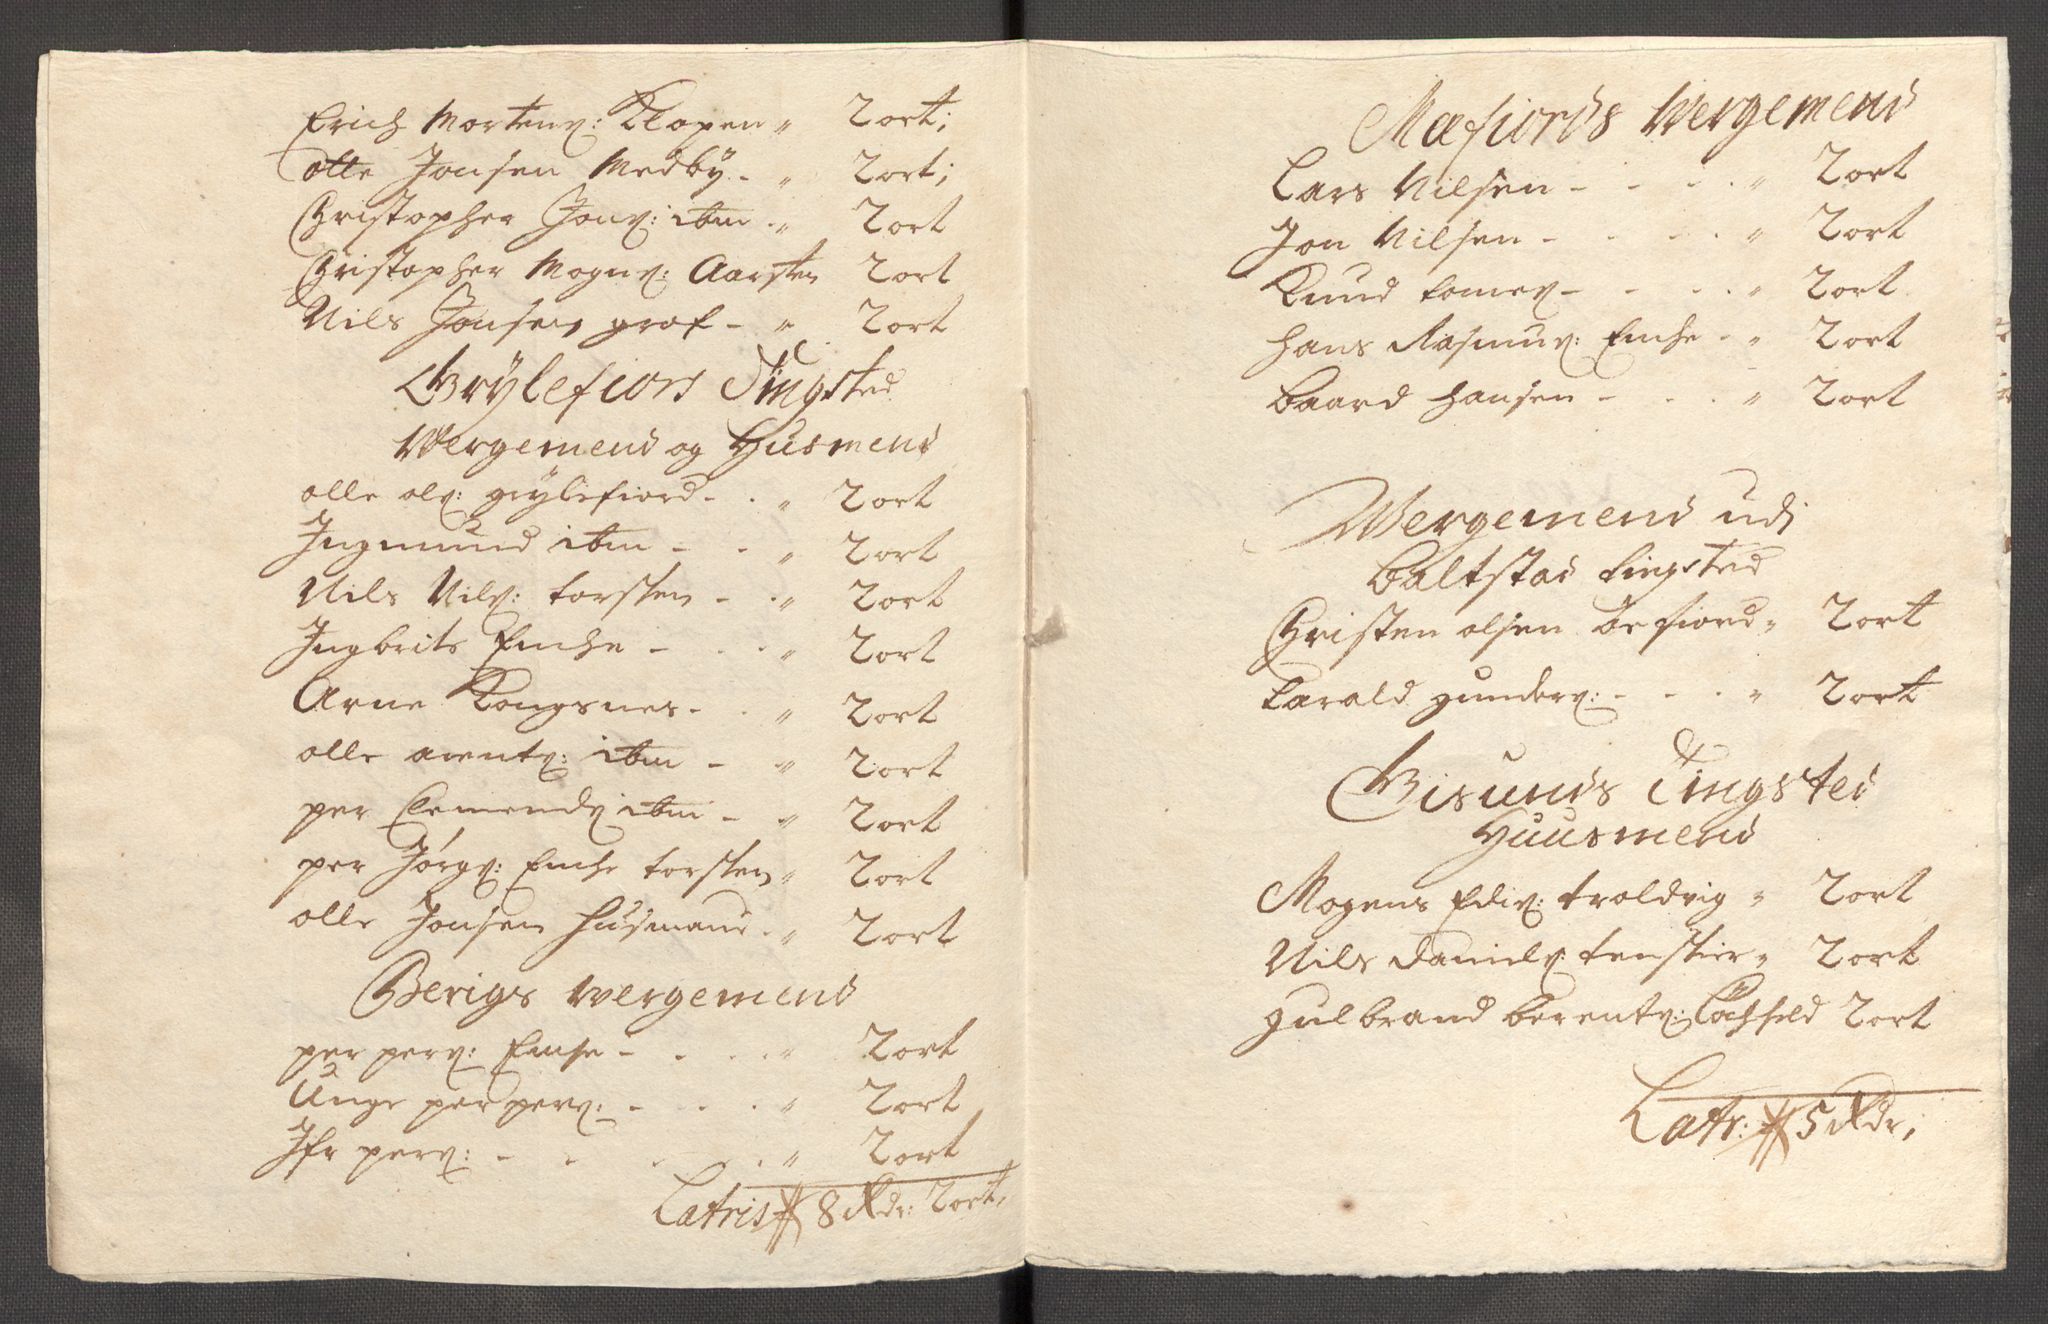 Erich Morten: Klopen " 2 ort;
olle Jonsen Medby - " 2 ort;
Christopher Jon: ibm - " 2 ort
Christopher Mogn: Aarsten 2 ort
Nils Jonsen graf - " 2 ort
Grÿlefiors Tingsted
Wergemend og Husmend
olle ol: grÿlefiord - " 2 ort
Ingmund ibm - - " 2 ort
Nils Nil: torsken - - " 2 ort
Ingbrits Enche - - - " 2 ort
Arne Kongsnes - - " 2 ort
olle arent: ibm - " 2 ort
per Clemends ibm - " 2 ort
per Jörg: Enche torsken " 2 ort
olle Jonsen Husmand - " 2 ort
Berigs wergemend
per per: Enche - - - " 2 ort
Unge per per: - - - " 2 ort
Ifr per: - - - - " 2 ort
Latris 8 Rdr: 2 ort,
Mefiords Wergemend
Lars Nilsen - - - - " 2 ort
Jon Nilsen - - - - " 2 ort
Knud tomes - - - - " 2 ort
Hans Rasmus: Enche - " 2 ort
Baard Hansen - - - " 2 ort
Wergemend udi
Baltstad tingsted
Christen olsen Befiord " 2 ort
tarald gunder: - - - " 2 ort
Gisunds Tingsted
Huusmend
Mogens Edi: troldvig " 2 ort
Nils Daniel: tenskier " 2 ort
gulbrand berent: 2 ort
Latr: 5 Rdr;